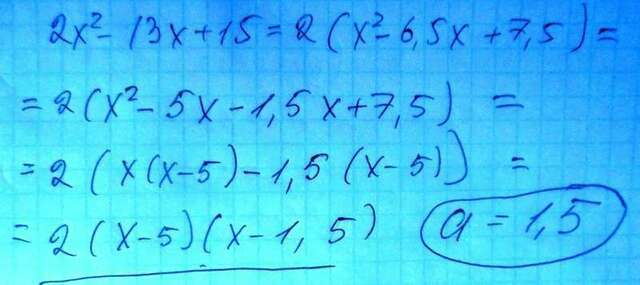 2x² - 13x + 15 = 2(x² - 6,5x + 7,5) =
= 2(x² - 5x - 1,5x + 7,5) =
= 2(x(x-5) - 1,5(x-5)) =
= 2(x-5)(x-1,5) a = 1,5